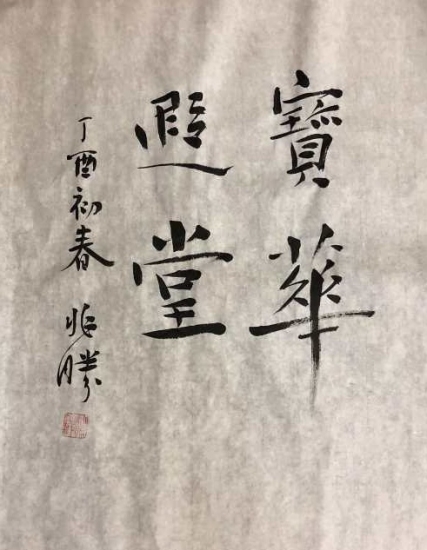 寶華
遐堂
丁酉初春 兆勝